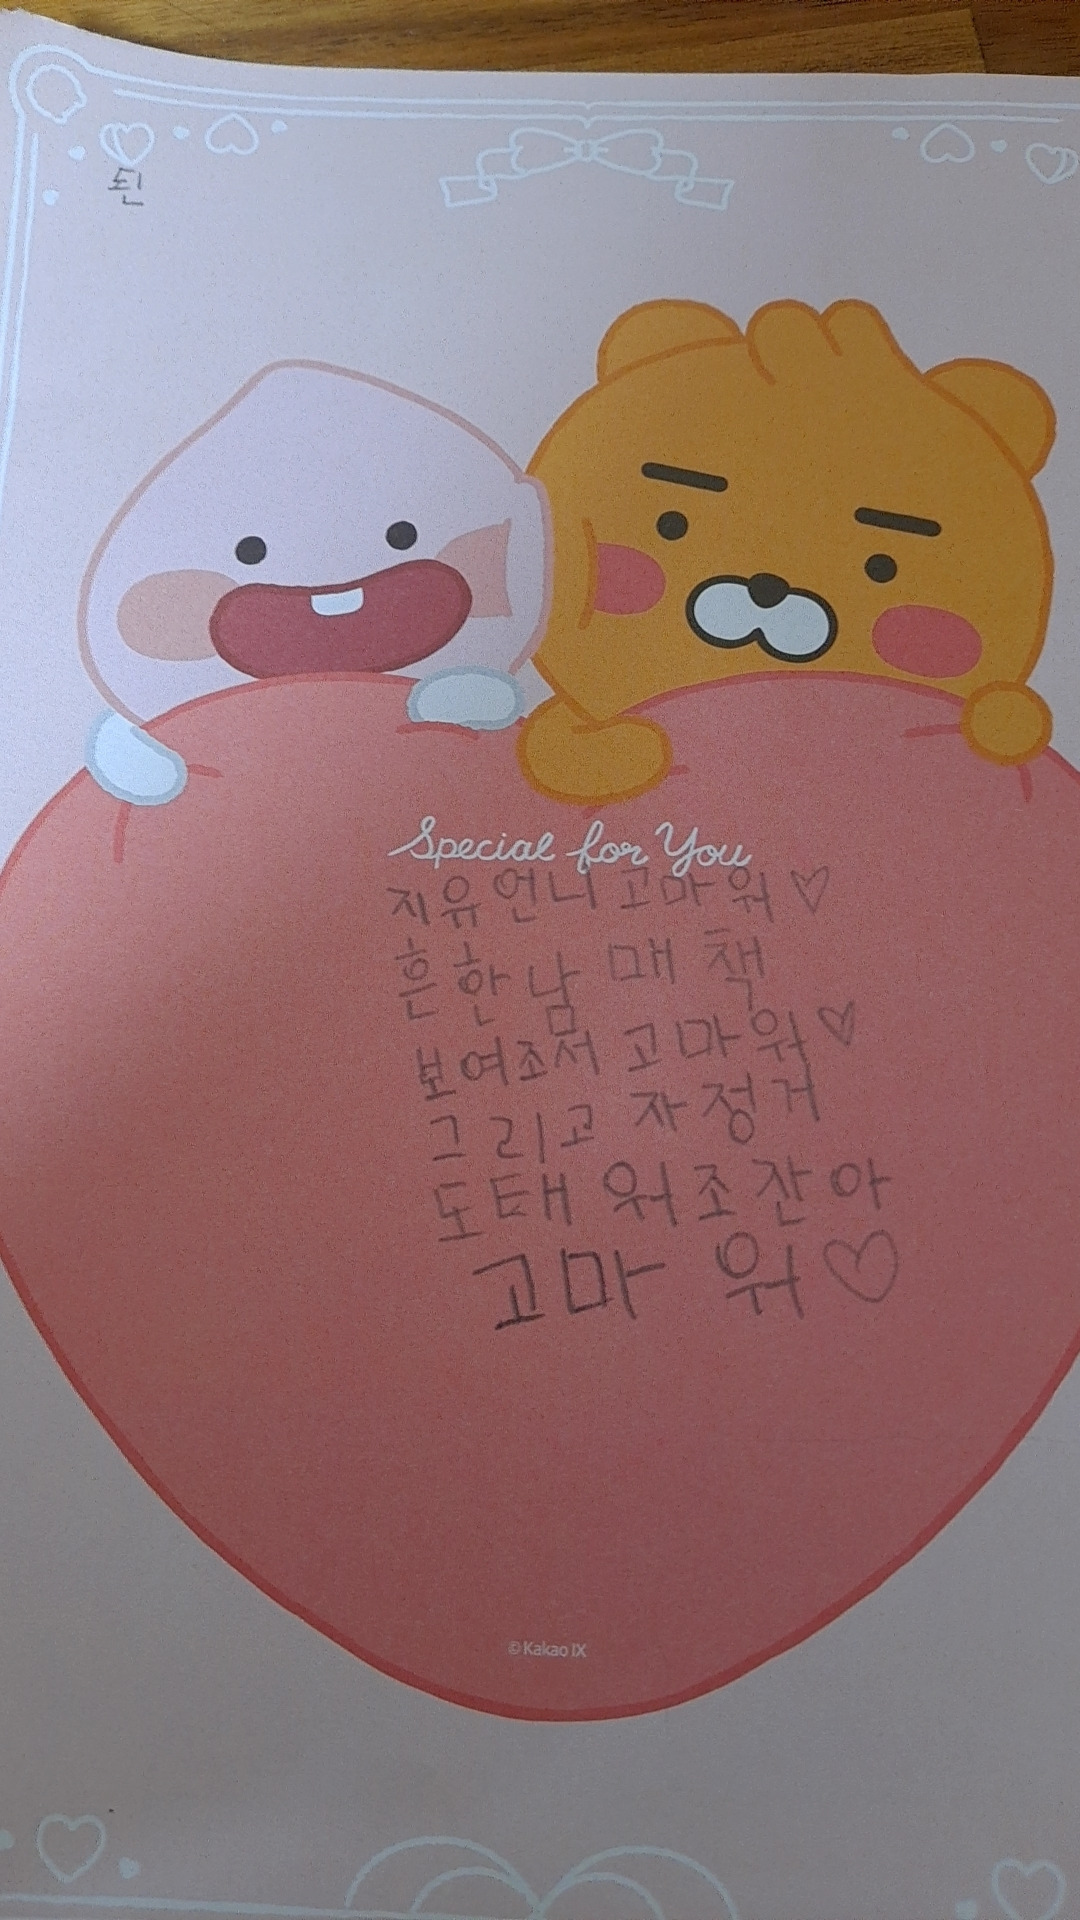 튄
Special for You
지유언니 고마워♡
흔한남매 책
보여조서 고마워♡
그리고 자정거
도태워조잔아
고마워♡
©Kakao IX